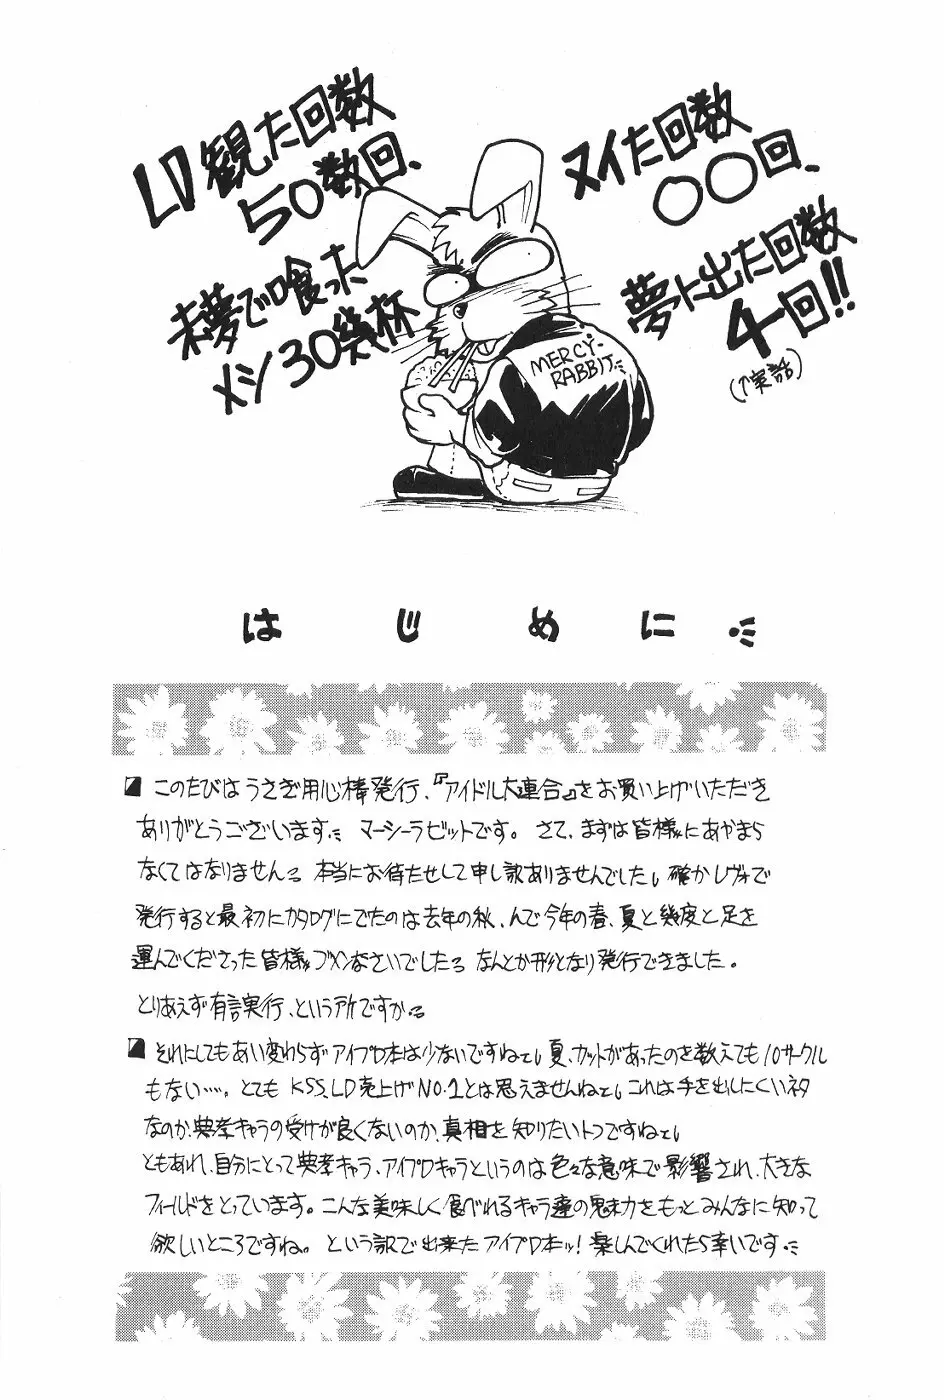 LD観た回数
50数回、
未夢で喰った
メシ30幾杯
ヌイた回数
〇〇回、
夢に出た回数
4回!!
(↑実話)
MERCY-
RABBIT
はじめに
このたびはうさぎ用心棒発行、『アイドル大連合』をお買い上げいただき
ありがとうございます。マーシーラビットです。さて、まずは皆様にあやまら
なくてはなりません。本当にお待たせして申し訳ありませんでした。確かレヴォで
発行すると最初にカタログにでたのは去年の秋、んで今年の春、夏と幾度と足を
運んでくださった皆様ゴメンなさいでした。なんとか形となり発行できました。
とりあえず有言実行、という所ですか。
それにしてもあい変わらずアイプロ本は少ないですねェ。夏、カットがあったのを数えても10サークル
もない……。とても KSS、LD売上げNO.1とは思えませんねェ。これは手を出しにくいネタ
なのか、典孝キャラの受けが良くないのか、真相を知りたいトコですねェ。
ともあれ、自分にとって典孝キャラ、アイプロキャラというのは色々な意味で影響され、大きな
フィールドをとっています。こんな美味しく食べれるキャラ達の魅力をもっとみんなに知って
欲しいところですね。という訳で出来たアイプロ本ッ!楽しんでくれたら幸いです。